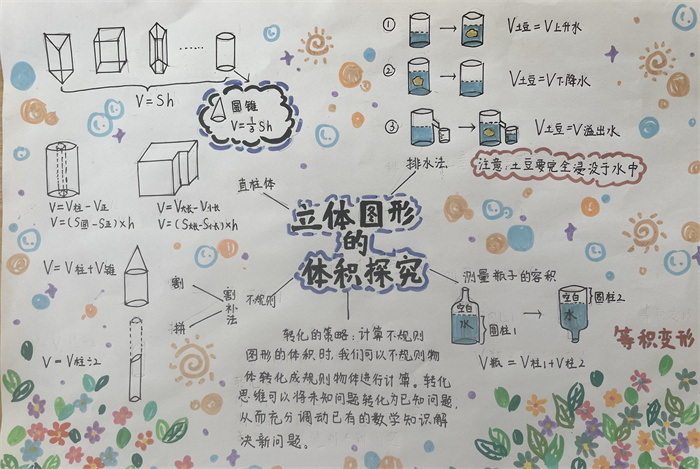 V=Sh
圆锥
V=1/3Sh
直柱体
V=V柱-V正
V=(S圆-S正)×h
V=V大长-V小长
V=(S大长-S小长)×h
① V土豆=V上升水
② V土豆=V下降水
③ V土豆=V溢出水
注意:土豆要完全浸没于水中
排水法
立体图形
的
体积探究
V=V柱+V锥
割
割补法
拼
不规则
V=V柱÷2
测量瓶子的容积
空白
水
圆柱1
空白
水
圆柱2
V瓶=V柱1+V柱2
等积变形
转化的策略:计算不规则
图形的体积时,我们可以不规则物
体转化成规则物体进行计算。转化
思维可以将未知问题转化为已知问题,
从而充分调动已有的数学知识解
决新问题。